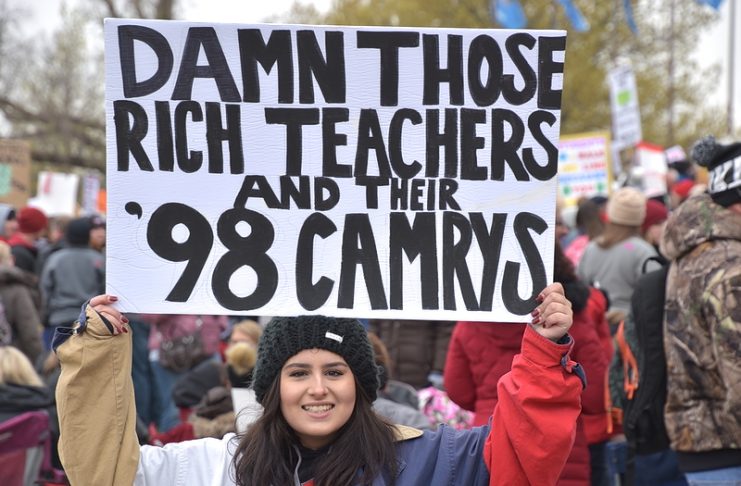 DAMN THOSE
RICH TEACHERS
AND THEIR
'98 CAMRYS